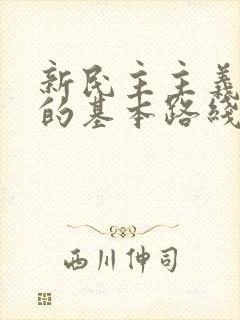 新民主主義
的基本路綫
西川伸司